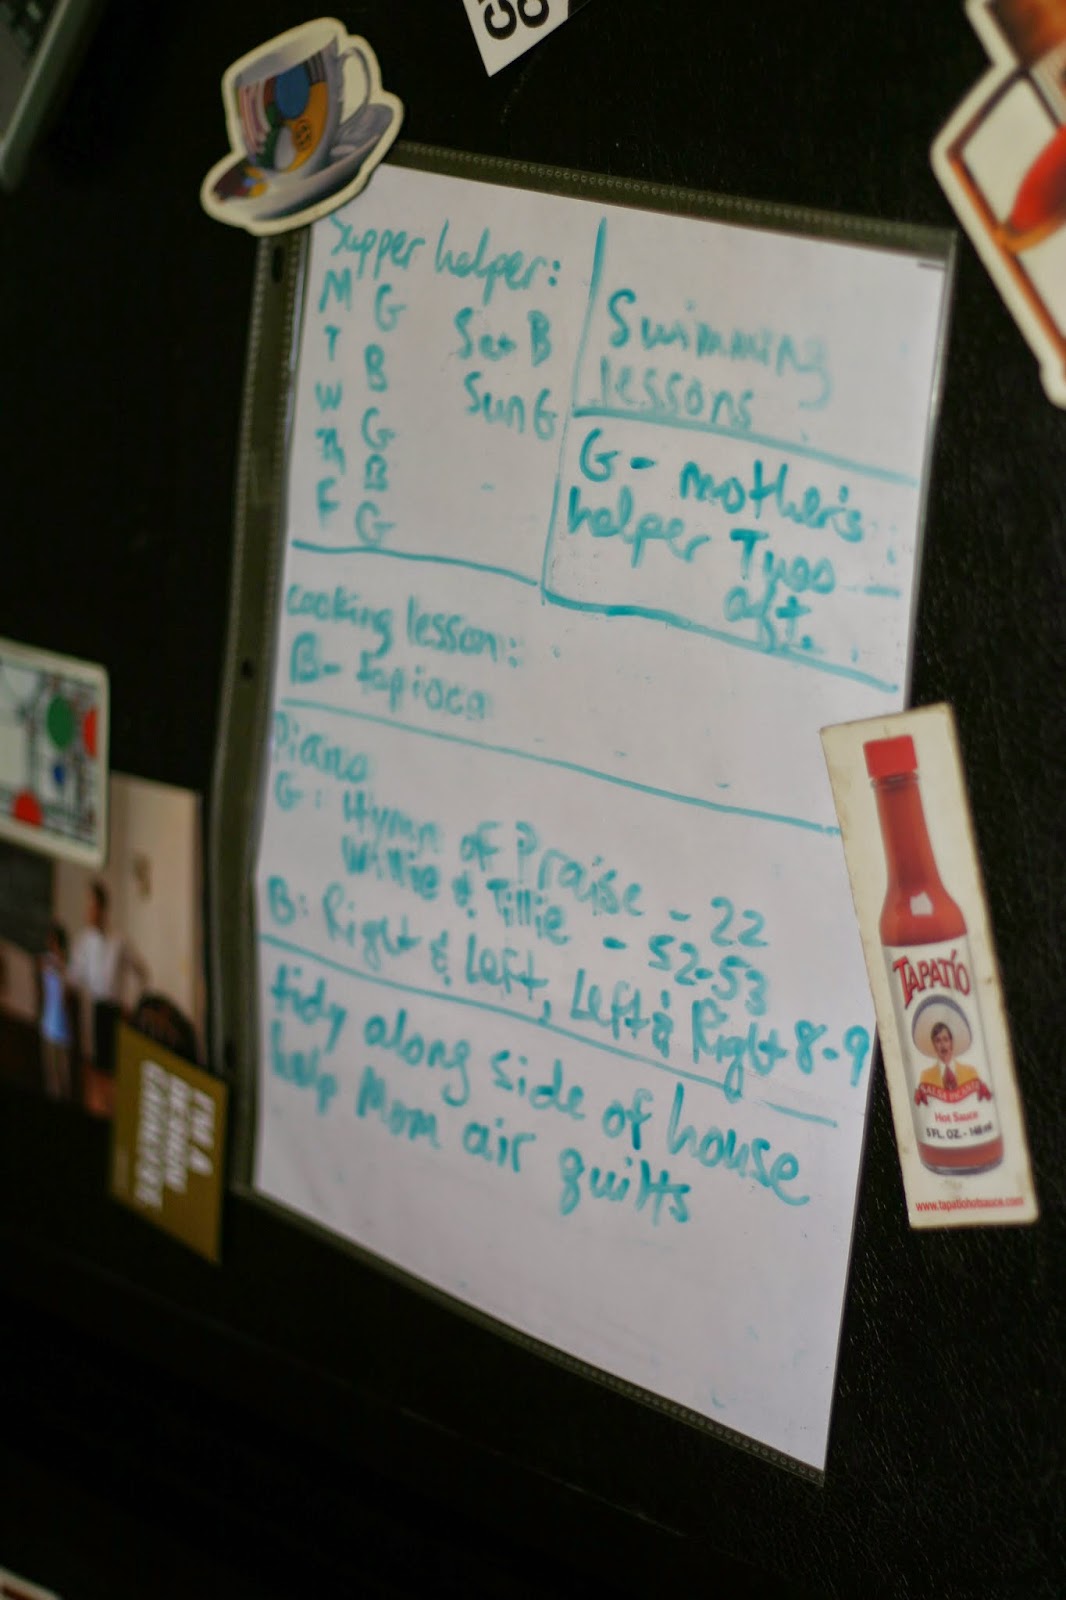 Supper helper:
M G
T B
W G
Th B
F G
Sat B
Sun G
Swimming
lessons
G - mother's
helper Tues
aft.
cooking lesson:
B - tapioca
Piano
G: Hymn of Praise - 22
Willie & Tillie - 52-53
B: Right & Left, Left & Right 8-9
tidy along side of house
help Mom air quilts
TAPATÍO
SALSA PICANTE
Hot Sauce
5 FL. OZ. - 148 ml
www.tapatiohotsauce.com
I'M A